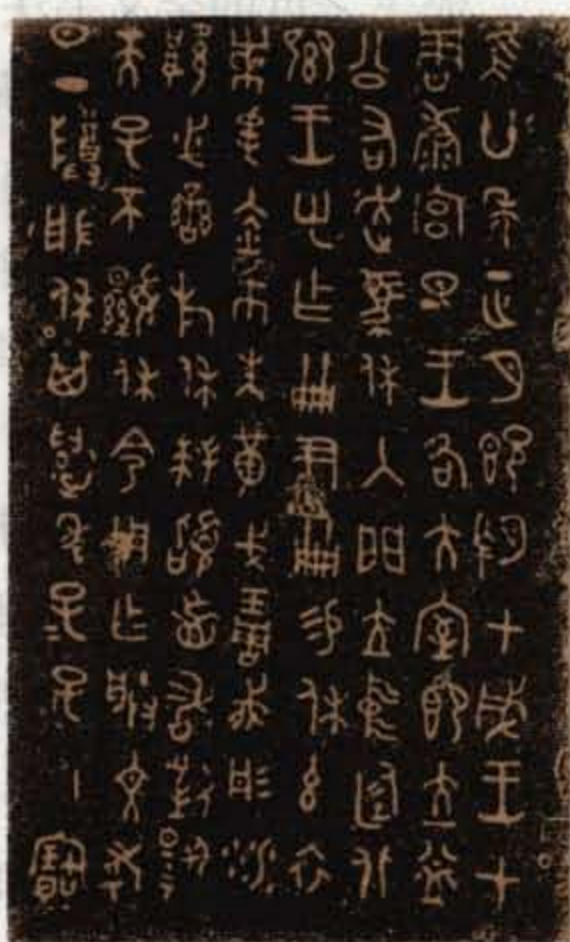 隹廿年正月既望甲戌王才
周康宮旦王各大室即立益
公右走馬休入門立中廷北
鄉王乎乍冊尹冊易休玄衣
黹屯赤巿朱黃戈琱胾彤沙
厚柲䜌㫃休拜稽首敢對揚
天子不顯休令用乍朕文考
日丁尊般休其萬年子子孫孫永寶